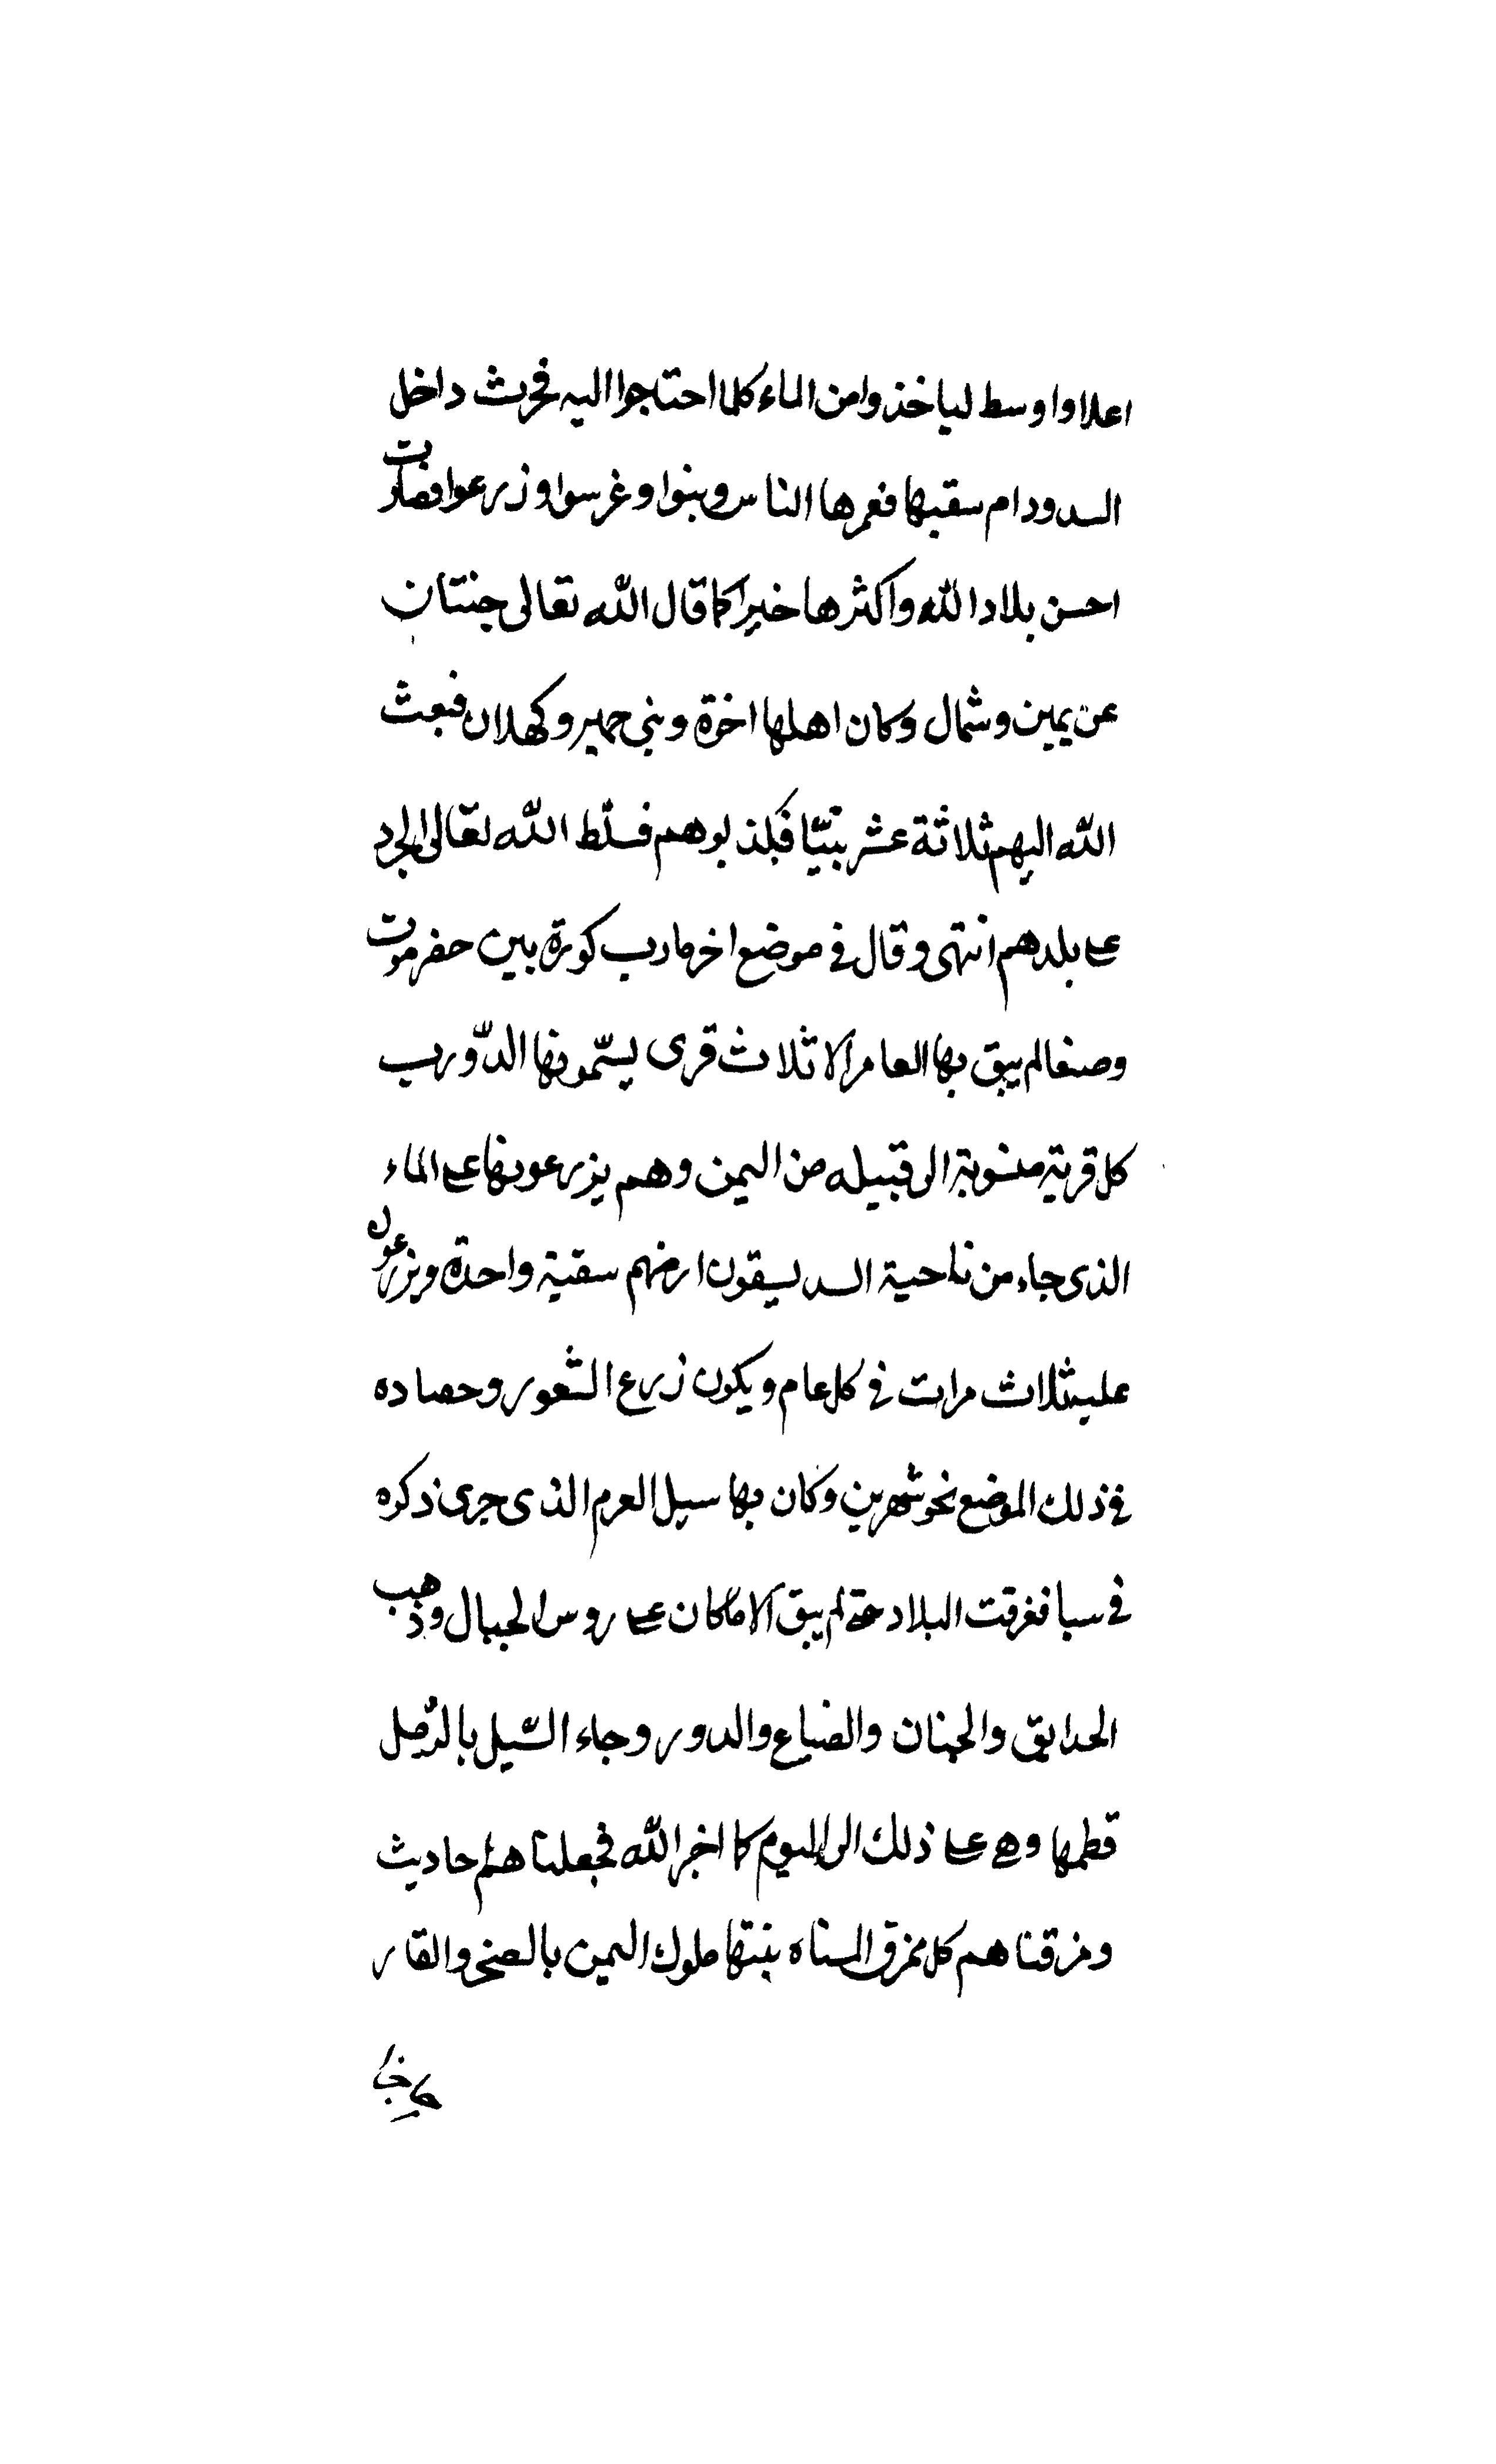 اعلا واوسط لياخذوا من الماء كلما احتاجوا اليه فحرث داخل
السد ودام سقيها فعمرها الناس وبنوا وغرسوا وزرعوا فصارت
احسن بلاد الله واكثرها خيرا كما قال الله تعالى جنتان
عن يمين وشمال وكان اهلها اخوة وبني حمير وكهلان فبعث
الله اليهم ثلاثة عشر نبيّا فكذبوهم فسلّط الله تعالى الجرد
على بلدهم انتهى وقال في موضع اخر مارب كورة بين حضرموت
وصنعا لم يبق بها العامر الا ثلاث قرى يسّمونها الدّورب
كل قرية منسوبة الى قبيله من اليمن وهم يزرعونها على الماء
الذى جاء من ناحية السد يسقون ارضهم سقية واحدة ويزرعون
عليه ثلاث مرات في كل عام ويكون زرع الشّعور وحصاده
في ذلك الموضع نحو شهرين وكان بها سيل العرم الذى جرى ذكره
في سبا فغرقت البلاد حتى لم يبق الا ماكان على روس الجبال وذهب
الحدايق والجنان والضياع والدور وجاء السّيل بالرّمل
قطمها وهي على ذلك الى اليوم كما اخبر الله فجعلناهم احاديث
ومزقناهم كل ممزق المسناه بنتها ملوك اليمن بالصخر والقار